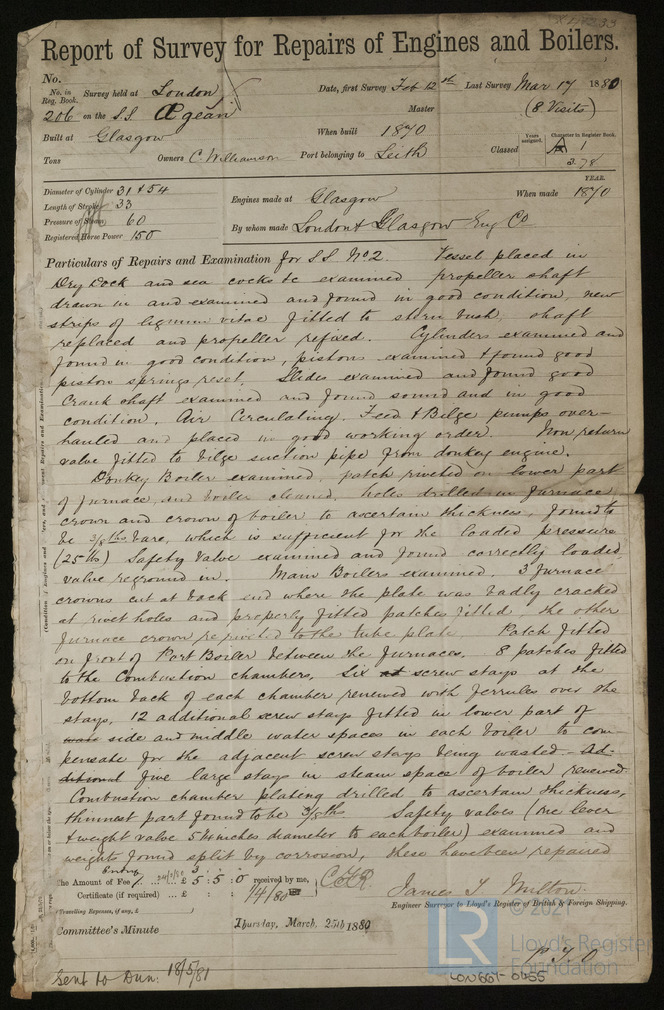 Report of Survey for Repairs of Engines and Boilers.
No.
No. in Reg. Book. Survey held at London Date, first Survey Feb 12th Last Survey Mar 17 1880
206 on the S.S. Ægean Master (8 Visits)
Built at Glasgow When built 1870 Years assigned. Character in Register Book.
Tons Owners C. Williamson Port belonging to Leith Classed A 1
3.78
Diameter of Cylinder 31 & 54 YEAR.
Length of Stroke 33 Engines made at Glasgow When made 1870
Pressure of Steam 60
Registered Horse Power 150 By whom made London & Glasgow Eng Co
Particulars of Repairs and Examination for S.S. No 2. Vessel placed in
Dry Dock and sea cocks &c examined propeller shaft
drawn in and examined and found in good condition, new
strips of lignum vitae fitted to stern bush, shaft
replaced and propeller refixed. Cylinders examined and
found in good condition, pistons examined & found good
piston springs reset. Slides examined and found good
Crank shaft examined and found sound and in good
condition. Air Circulating, Feed & Bilge pumps over-
hauled and placed in good working order. Non return
valve fitted to bilge suction pipe from donkey engine.
Donkey Boiler examined, patch riveted on lower part
of furnace, and boiler cleaned. holes drilled in furnace
crown and crown of boiler to ascertain thickness, found to
be 3/8ths bare, which is sufficient for the loaded pressure
(25 lbs) Safety Valve examined and found correctly loaded,
valve reground in. Main Boilers examined. 3 furnace
crowns cut at back end where the plate was badly cracked
at rivet holes and properly fitted patches fitted, the other
furnace crown re riveted to the tube plate Patch fitted
on front of Port Boiler between the furnaces. 8 patches fitted
to the Combustion chambers. Six at screw stays at the
bottom back of each chamber renewed with ferrules over the
stays, 12 additional screw stays fitted in lower part of
side and middle water spaces in each boiler to com-
pensate for the adjacent screw stays being wasted - Ad-
ditional five large stays in steam space of boiler renewed
Combustion chamber plating drilled to ascertain thickness,
thinnest part found to be 3/8ths Safety valves (one lever
& weight valve 5 1/4 inches diameter to each boiler) examined and
weights found split by corrosion, these have been repaired
The Amount of Fee £ 5 : 5 : 0 received by me,
Certificate (if required) £ : : 1/4/80 James T. Milton
(Travelling Expenses, if any, £ ) Engineer Surveyor to Lloyd's Register of British & Foreign Shipping.
Committee's Minute Thursday, March, 25th 1880
P.T.O
Sent to Dun. 18/5/81
LON 667-0455
© 2021
LR
Lloyd's Register
Foundation